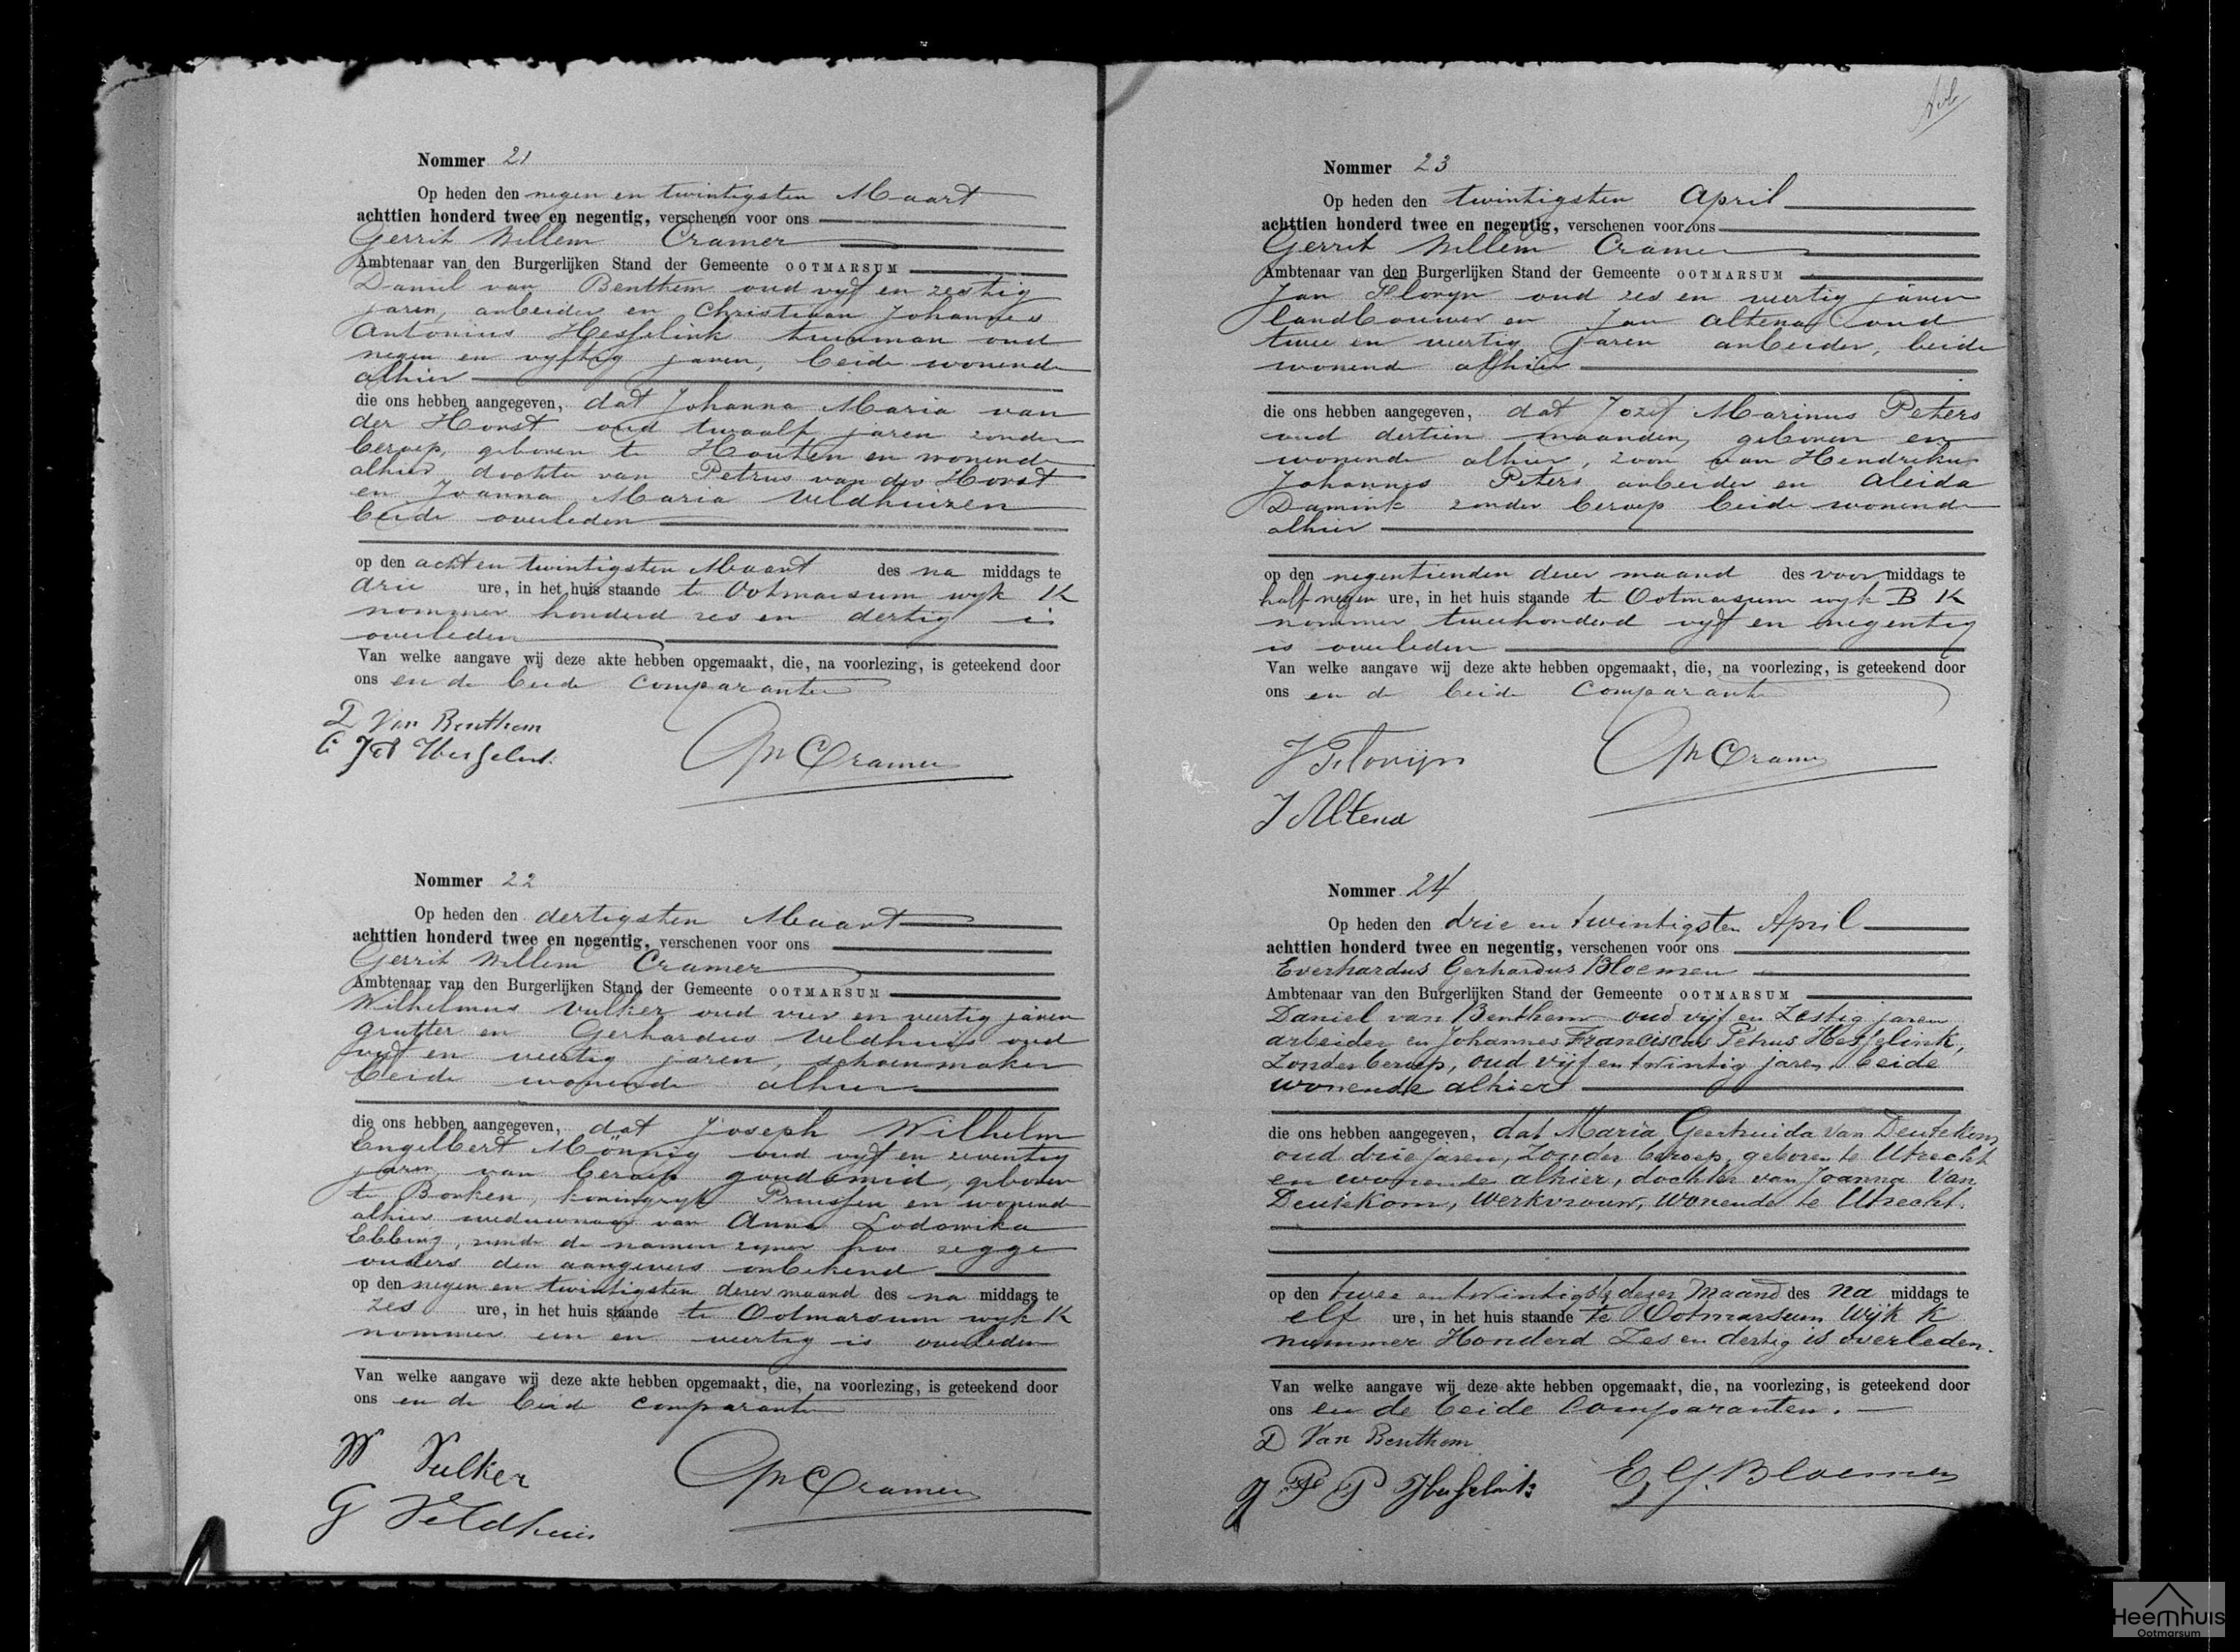 Nommer 21
Op heden den negen en twintigsten Maart
achttien honderd twee en negentig, verschenen voor ons
Gerrit Willem Cramer
Ambtenaar van den Burgerlijken Stand der Gemeente OOTMARSUM
Daniel van Benthem oud vyf en zestig
jaren, arbeider en Christiaan Johannes
Antonius Hesselink tuinman oud
negen en vyftig jaren, beide wonende
alhier
die ons hebben aangegeven, dat Johanna Maria van
der Horst oud twaalf jaren zonder
beroep, geboren te Houten en wonende
alhier dochter van Petrus van der Horst
en Joanna Maria Veldhuizen
beide overleden
op den acht en twintigsten Maart des na middags te
drie ure, in het huis staande te Ootmarsum wyk K
nommer honderd zes en dertig is
overleden
Van welke aangave wij deze akte hebben opgemaakt, die, na voorlezing, is geteekend door
ons en de beide comparanten
D Van Benthem
GWCramer
Nommer 22
Op heden den dertigsten Maart
achttien honderd twee en negentig, verschenen voor ons
Gerrit Willem Cramer
Ambtenaar van den Burgerlijken Stand der Gemeente OOTMARSUM
Wilhelmus Vulker oud vier en veertig jaren
grutter en Gerhardus Veldhuis oud
vyf en veertig jaren, schoenmaker
beide wonende alhier
die ons hebben aangegeven, dat Joseph Wilhelm
Engelbert Mönnig oud vyf en zeventig
jaren, van beroep goudsmid, geboren
te Borken, koningryk Pruissen en wonende
alhier weduwnaar van Anna Lodowika
Ebbing, zynde de namen zyner zegge
ouders den aangevers onbekend
op den negen en twintigsten dezer maand des na middags te
zes ure, in het huis staande te Ootmarsum wyk K
nommer een en veertig is overleden
Van welke aangave wij deze akte hebben opgemaakt, die, na voorlezing, is geteekend door
ons en de beide comparanten
W Vulker
G Veldhuis
GWCramer
Nommer 23
Op heden den twintigsten April
achttien honderd twee en negentig, verschenen voor ons
Gerrit Willem Cramer
Ambtenaar van den Burgerlijken Stand der Gemeente OOTMARSUM
Jan Floryn oud zes en veertig jaren
landbouwer en Jan Altena oud
twee en veertig jaren arbeider, beide
wonende alhier
die ons hebben aangegeven, dat Jozef Marinus Peters
oud dertien maanden, geboren en
wonende alhier, zoon van Hendrikus
Johannes Peters arbeider en Aleida
Damink zonder beroep beide wonende
alhier
op den negentienden dezer maand des voor middags te
half negen ure, in het huis staande te Ootmarsum wyk B K
nommer tweehonderd vyf en negentig
is overleden
Van welke aangave wij deze akte hebben opgemaakt, die, na voorlezing, is geteekend door
ons en de beide comparanten
J Florijn
GWCramer
J Altena
Nommer 24
Op heden den drie en twintigsten April
achttien honderd twee en negentig, verschenen voor ons
Everhardus Gerhardus Bloemen
Ambtenaar van den Burgerlijken Stand der Gemeente OOTMARSUM
Daniel van Benthem oud vijf en Zestig jaren
arbeider en Johannes Franciscus Petrus Hesselink,
Zonder beroep, oud vijf en twintig jaren beide
wonende alhier
die ons hebben aangegeven, dat Maria Geertruida van Deutekom
oud drie jaren, Zonder beroep, geboren te Utrecht
en wonende alhier, dochter van Joanna Van
Deutekom, Werkvrouw, Wonende te Utrecht.
op den twee en twintigste dezer Maand des na middags te
elf ure, in het huis staande te Ootmarsum Wijk K
nummer Honderd Zes en dertig is overleden.
Van welke aangave wij deze akte hebben opgemaakt, die, na voorlezing, is geteekend door
ons en de beide Comparanten.
D Van Benthem
J F P Hesselink
E.G. Bloemen
Heemhuis
Ootmarsum